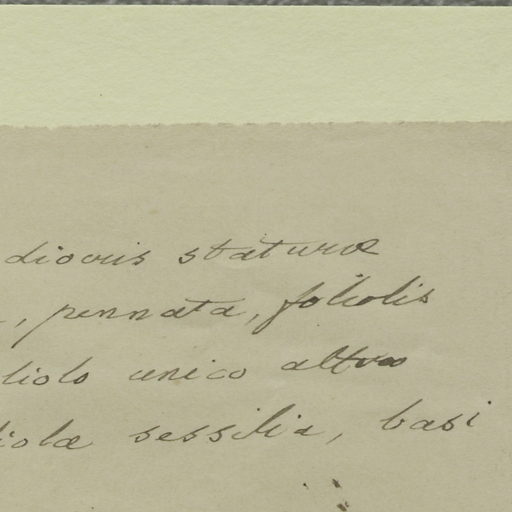 diocris staturæ
, pennata, foliolis
liolo unico altero
iolæ sessilia, basi